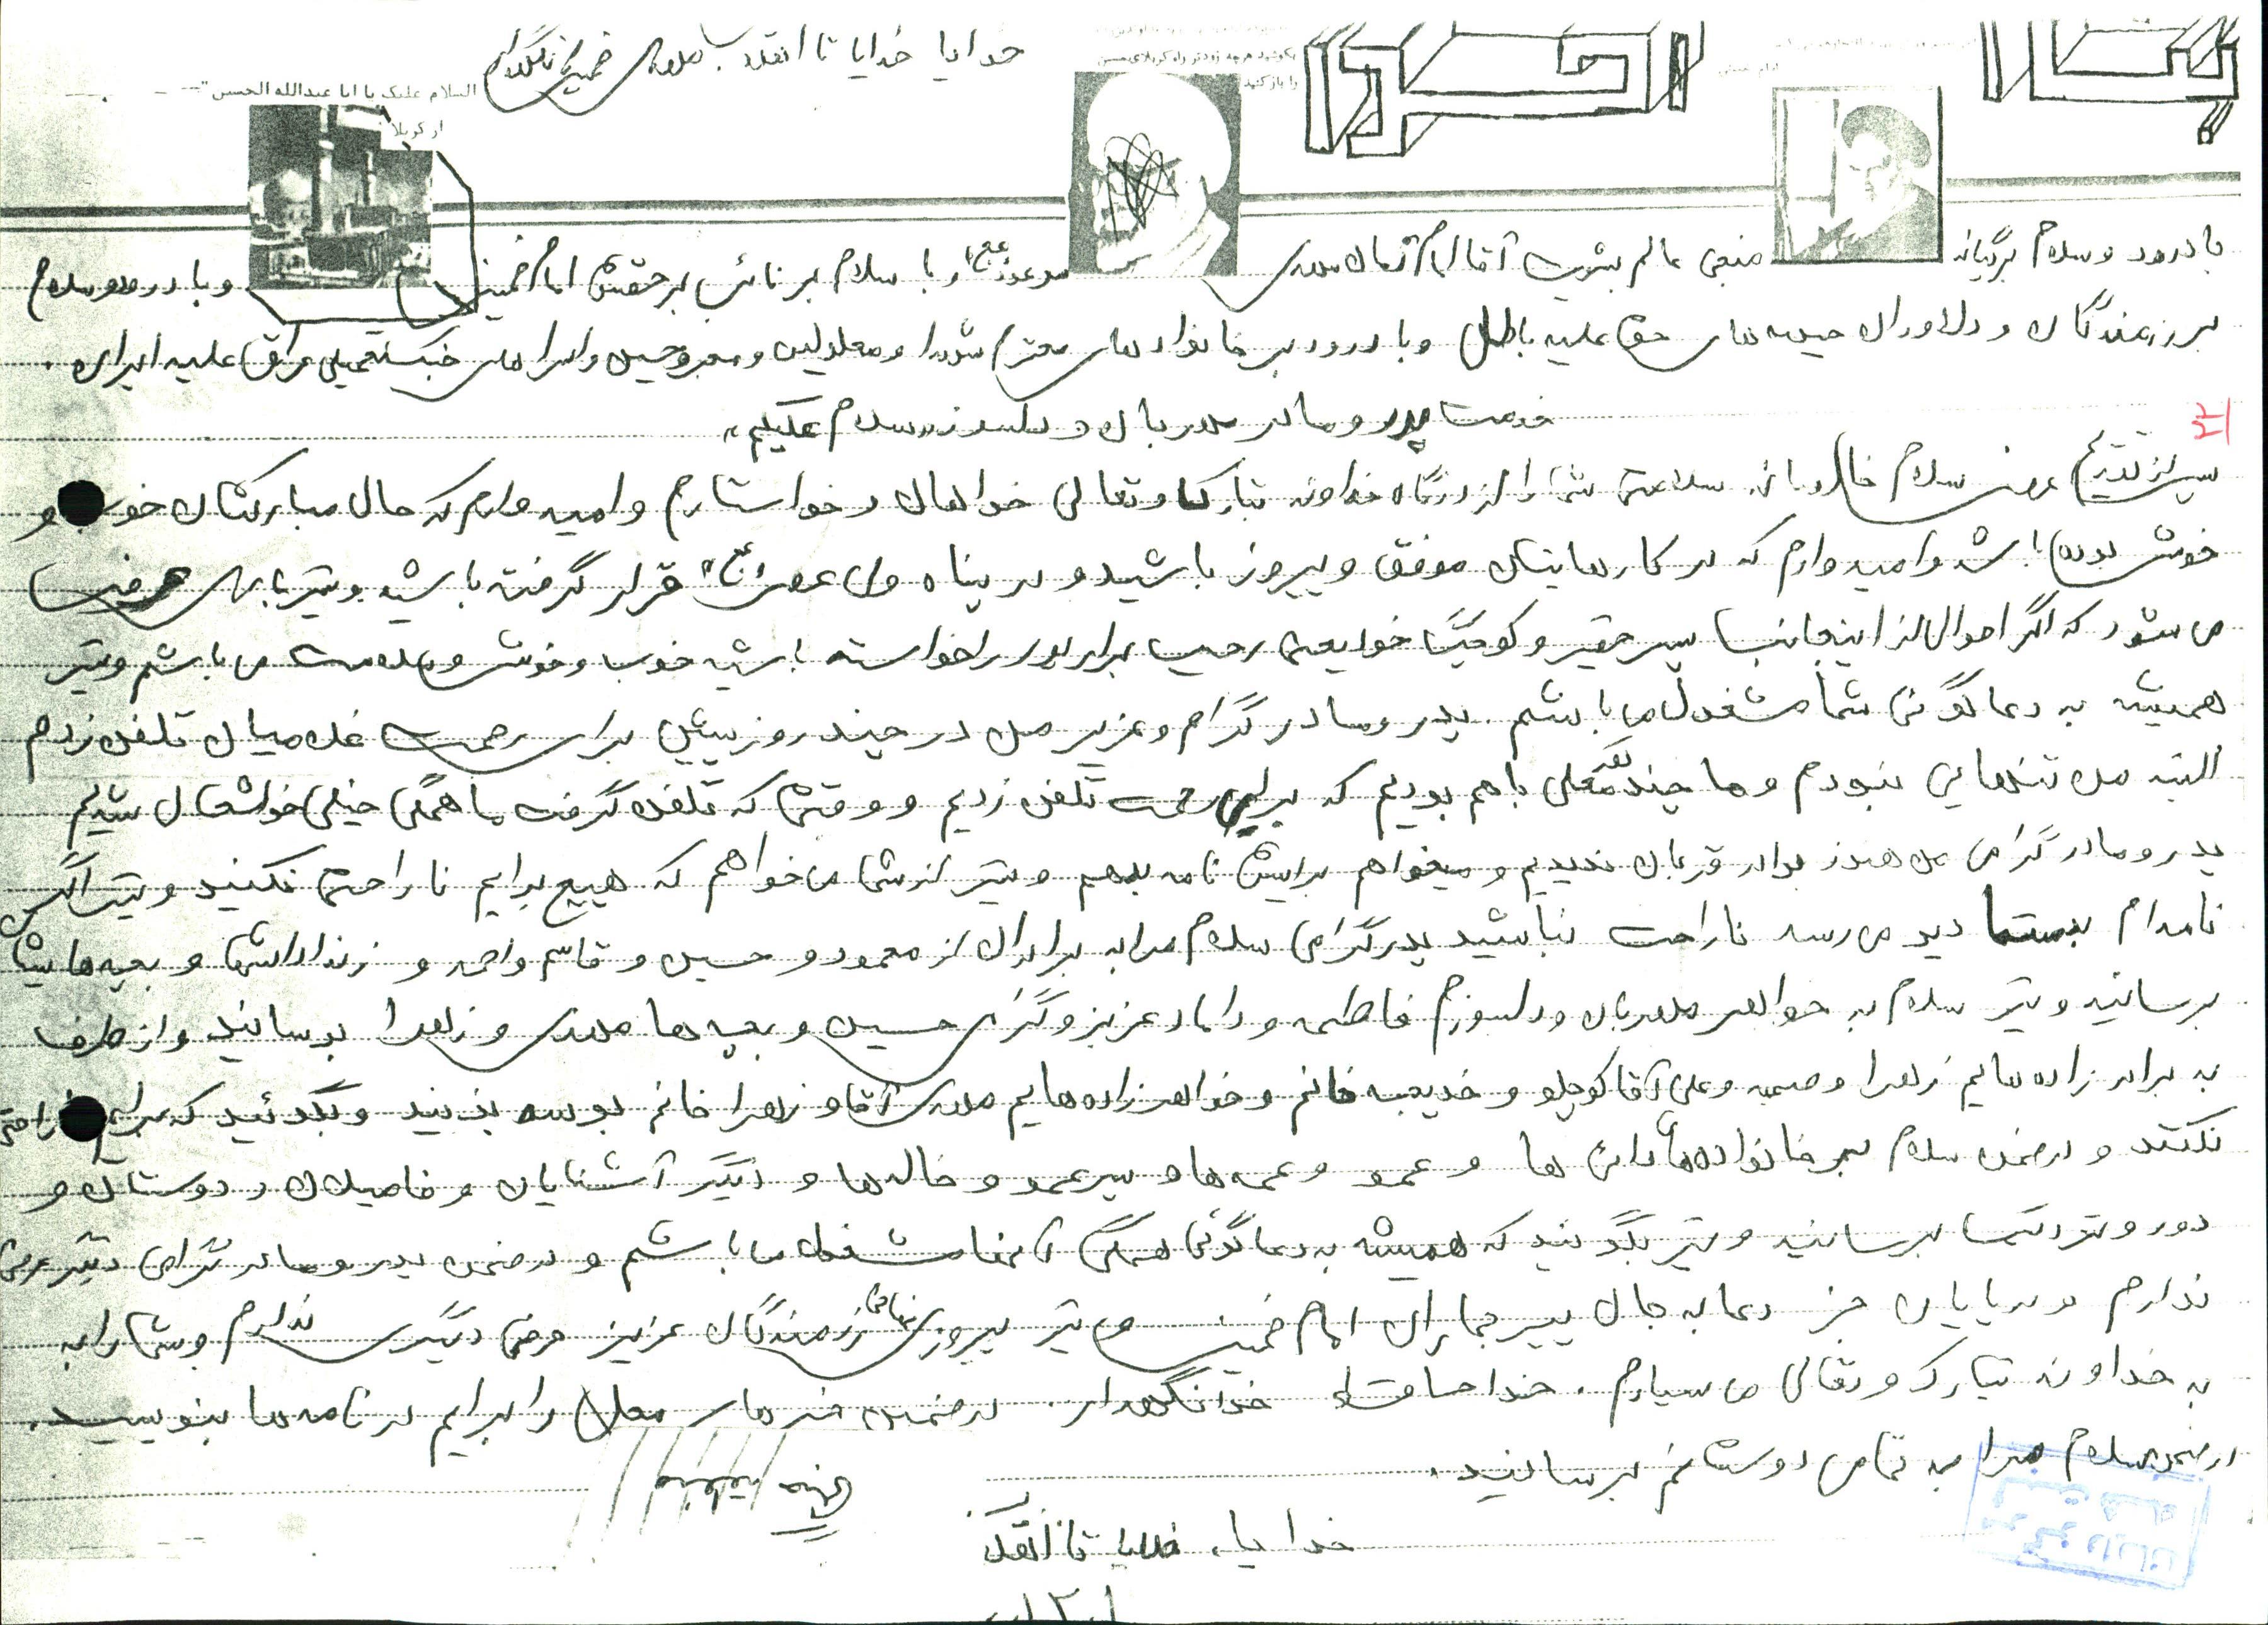 خدایا خدایا تا انقلاب مهدی خمینی را نگهدار
بکوشید هرچه زودتر راه کربلای حسین
را باز کنید
السلام علیک یا ابا عبدالله الحسین
از کربلا
با درود و سلام بر یگانه منجی عالم بشریت آقا امام زمان مهدی موعود (عج) و با سلام بر نائب برحقش امام خمینی و با درود و سلام
بر رزمندگان و دلاوران جبهه های حق علیه باطل و با درود بر خانواد های محترم شهدا و معلولین و مجروحین و اسرا های جنگ تحمیلی عراق علیه ایران .
خدمت پدر و مادر مهربان و دلسوزم سلام علیکم
پس از تقدیم عرض سلام سلامتی شما را از درگاه خداوند تبارک و تعالی خواهان و خواستارم و امید وارم که حال مبارکتان خوب و
خوش بوده باشد و امیدوارم که در کارهایتان موفق و پیروز باشید و در پناه ولی عصر (عج) قرار گرفته باشید و نیز عرض
می شود که اگر احوال از اینجانب پسر حقیر و کوچک خود یعنی رجب را خواسته باشید خوب و خوش و سلامت می باشم و نیز
همیشه به دعا گوئی شما مشغول می باشم . پدر و مادر گرام و عزیز من در چند روز پیش برای رحمت تلفن زدم
البته من تنهایی نبودم و ما چند نفر محلی با هم بودیم که برای رحمت تلفن زدیم و وقتی که تلفن گرفت ما همگی خیلی خوشحال شدیم
پدر و مادر گرامی من هنوز ندیدیم و میخواهم برایش نامه بدهم و نیز از شما می خواهم که هیچ برایم ناراحتی نکنید و نیز اگر
نامه ام بدستتا دیر می رسد ناراحت نباشید پدر گرامی سلام مرا به برادران از محمود و حسین و قاسم و احمد و زنداداشها و بچه هایشا
برسانید و نیز سلام به خواهر مهربان و دلسوزم فاطمه و داماد عزیز و گرامی حسین و بچه ها مهدی و زهرا برسانید و از طرف
به برادر زاده هایم زهرا و و علی آقا کوچلو و خدیجه خانم و خواهر زاده هایم مهدی آقا و زهرا خانم بوسه بزنید و بگوئید که برایم ناراحتی
نکنند و در ضمن سلام بر خانواده های دائی ها و عمو و عمه ها و پسر عمو و خاله ها و دیگر آشنایان و فامیلان و دوستان و
دور و نزدیک برسانید و نیز بگوئید که همیشه به دعا گوئی همگی مشغول می باشم و در ضمن پدر و مادر گرامی دیگر عرضی
ندارم و در پایان جز دعا به جان پیر جماران امام خمینی و نیز پیروزی نهائی رزمندگان عزیز عرض دیگری ندارم و شما را به
به خداوند تبارک و تعالی می سپارم . خدا حافظ خدا نگهدار . در ضمن خبرهای محل را برایم در نامه ها بنویسید .
در ضمن سلام مرا به تمامی دوستانم برسانید .
خدایا ، خدایا تا انقلاب